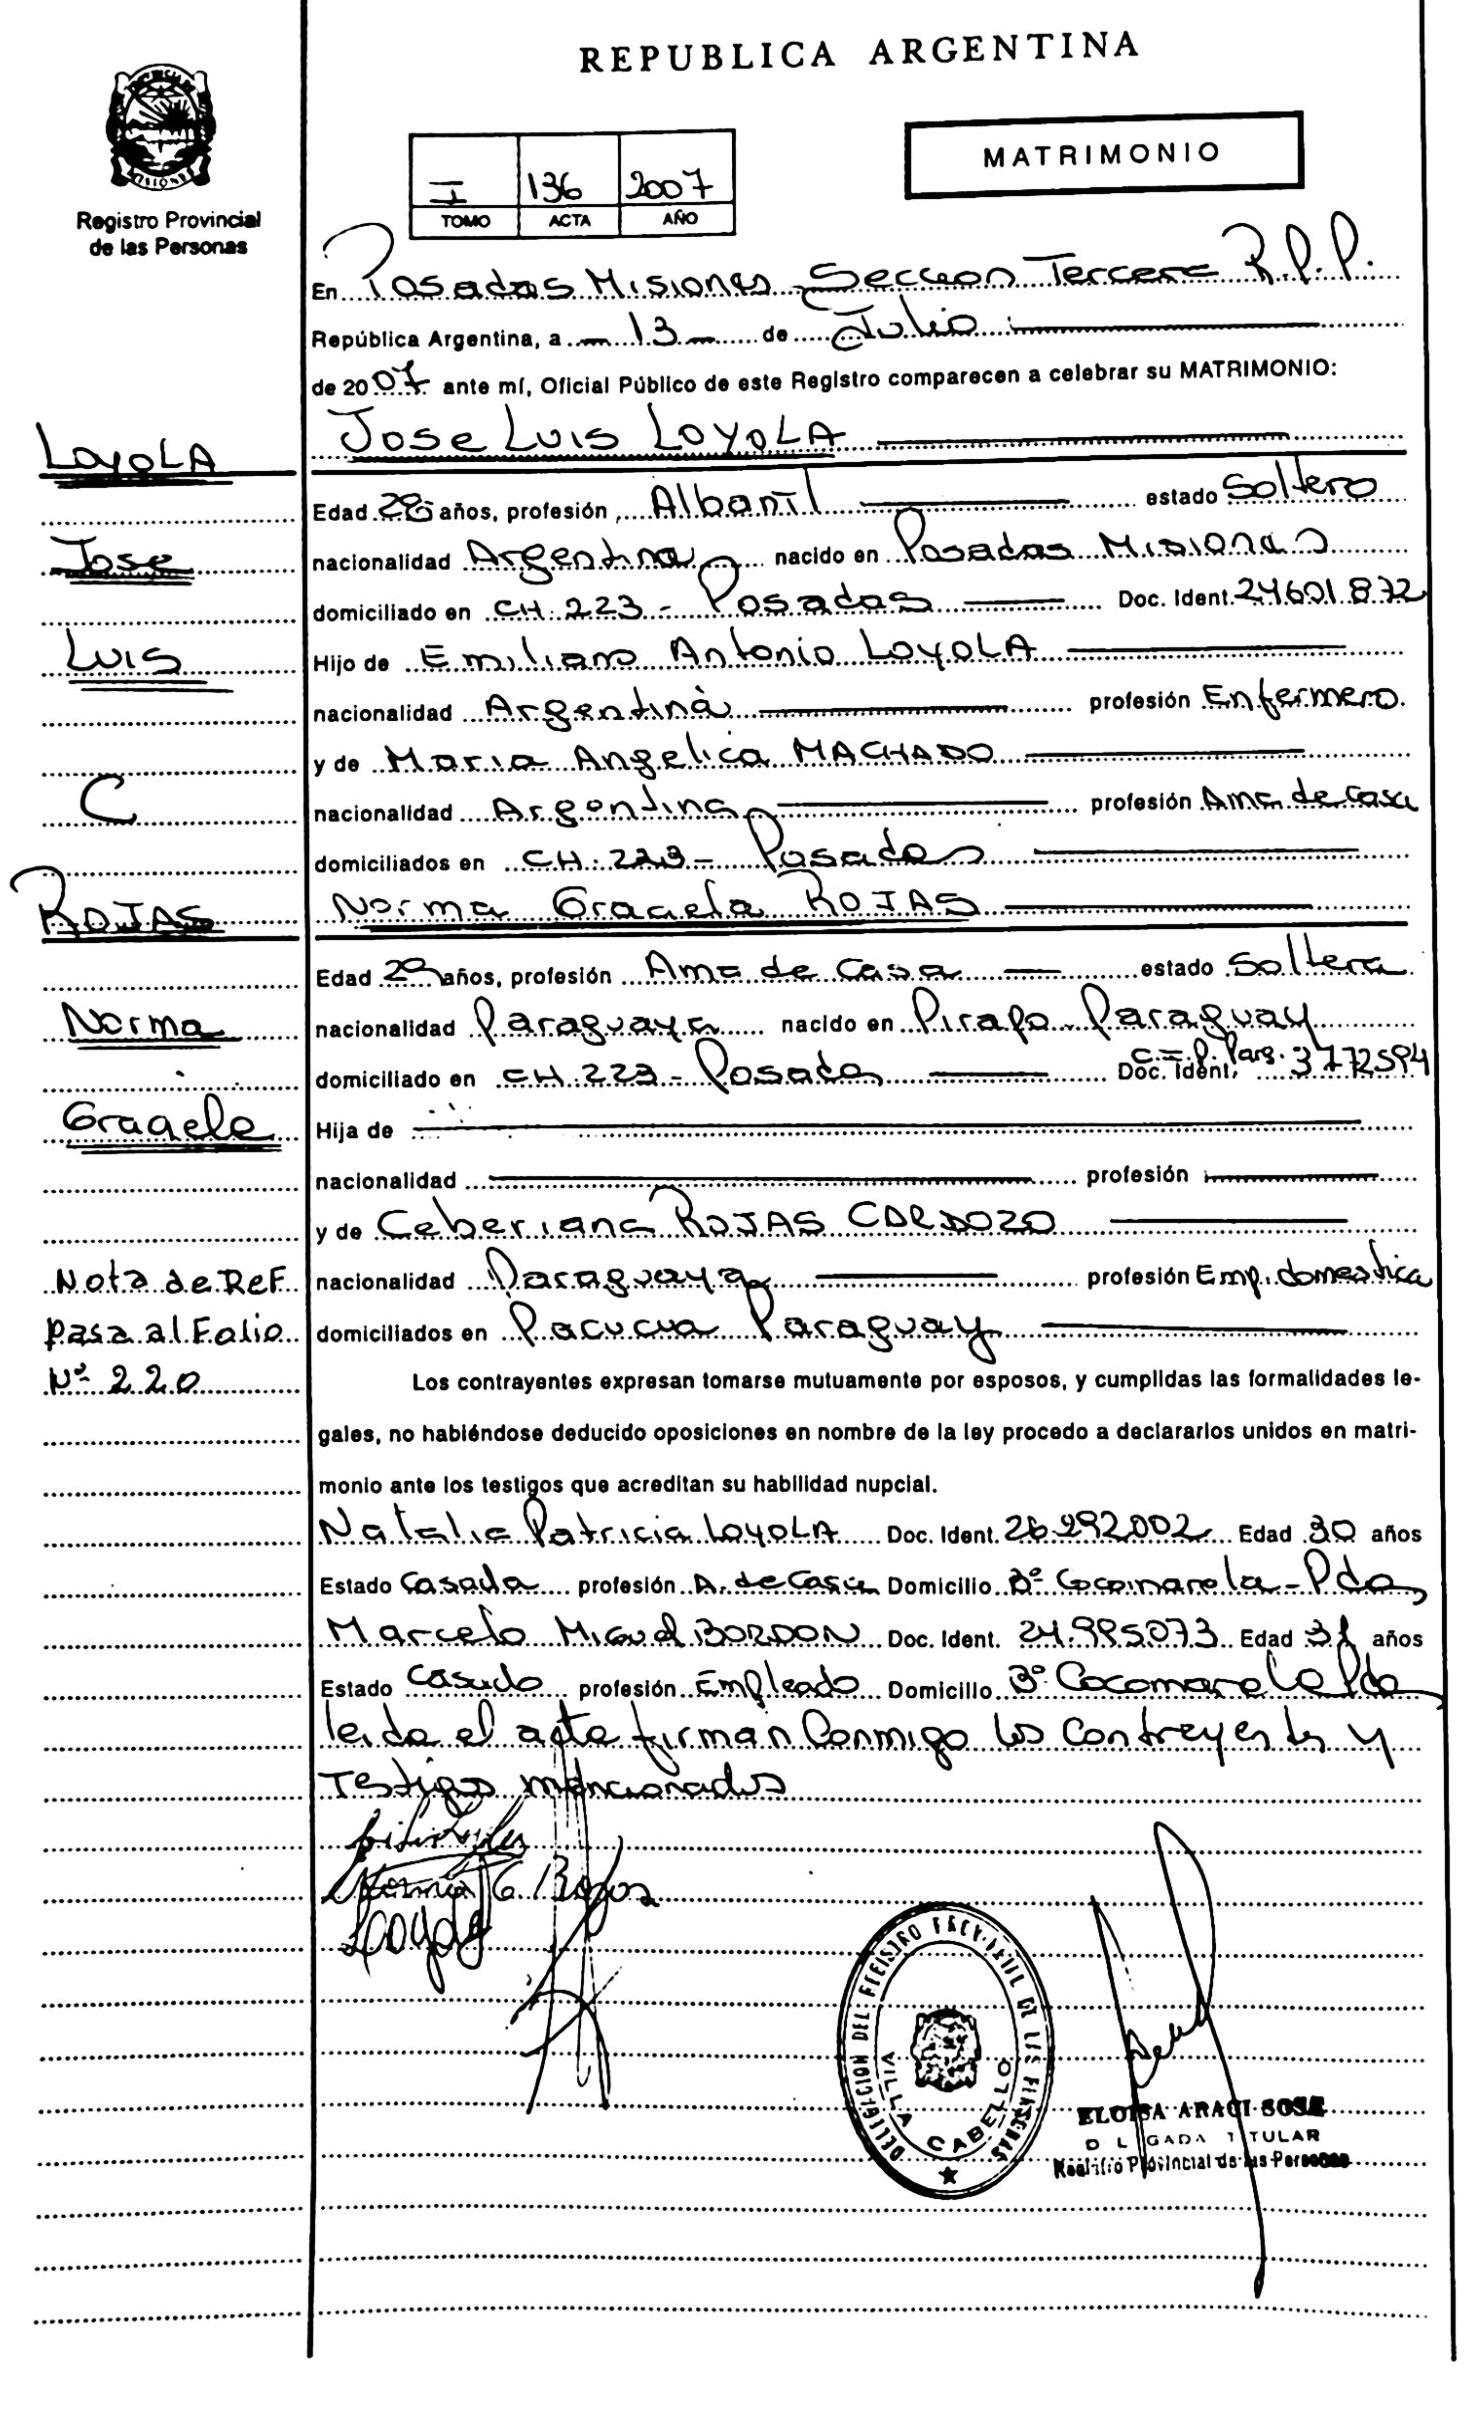 REPUBLICA ARGENTINA
MATRIMONIO
I 136 2007
TOMO ACTA AÑO
Registro Provincial
de las Personas
En Posadas Misiones Seccion Tercera R.P.P.
República Argentina, a 13 de Julio
de 2007 ante mí, Oficial Público de este Registro comparecen a celebrar su MATRIMONIO:
LOYOLA
Jose Luis LOYOLA
Edad 28 años, profesión, Albañil estado Soltero
Jose
nacionalidad Argentina nacido en Posadas Misiones
domiciliado en CH. 223 - Posadas Doc. Ident. 24601872
Luis
Hijo de Emiliano Antonio LOYOLA
nacionalidad Argentina profesión Enfermero
y de Maria Angelica MACHADO
C
nacionalidad Argentina profesión Ama de Casa
domiciliados en CH. 223 - Posadas
ROJAS
Norma Graciela ROJAS
Edad 29 años, profesión Ama de Casa estado Soltera
Norma
nacionalidad Paraguaya nacido en Pirapo - Paraguay
domiciliado en CH. 223 - Posadas Doc. Ident. C.I.P. Parg. 3772594
Graciela
Hija de
nacionalidad profesión
y de Ceberiana ROJAS CARDOZO
Nota de Ref.
nacionalidad Paraguaya profesión Emp. domestica
pasa al Folio
domiciliados en Pacucua Paraguay
Nº 220
Los contrayentes expresan tomarse mutuamente por esposos, y cumplidas las formalidades le-
gales, no habiéndose deducido oposiciones en nombre de la ley procedo a declararlos unidos en matri-
monio ante los testigos que acreditan su habilidad nupcial.
Natalia Patricia LOYOLA Doc. Ident. 26.292.002 Edad 30 años
Estado Casada profesión A. de Casa Domicilio Bº Cocomarola - Pdas
Marcelo Miguel BORDON Doc. Ident. 24.995073 Edad 31 años
Estado Casado profesión Empleado Domicilio Bº Cocomarola Pdas
leida el acta firman Conmigo los Contrayentes y
Testigos mencionados
Norma G Rojas
Loyola
DELEGACION DEL REGISTRO PROVINCIAL DE LAS PERSONAS
VILLA CABELLO
ELOISA ARACI SOSA
DELEGADA TITULAR
Registro Provincial de las Personas